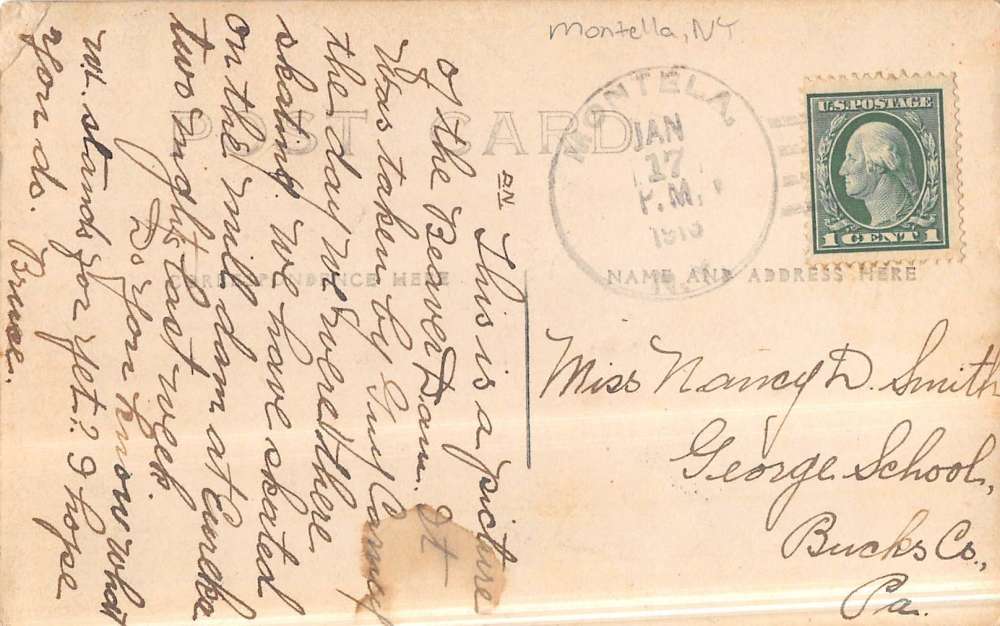 Montella, NY
POST CARD
MONTELA,
JAN
17
P.M.
N.Y.
U.S. POSTAGE
1 CENT 1
CORRESPONDENCE HERE
NAME AND ADDRESS HERE
This is a picture
of the Beaver Dam. It
was taken by Guy Carney
the day we were there
skating. We have skated
on the mill dam at Eureka
two nights last week.
Do you know what
W. stands for yet? I hope
you do.
Bruce.
Miss Nancy D. Smith
George School,
Bucks Co.,
Pa.